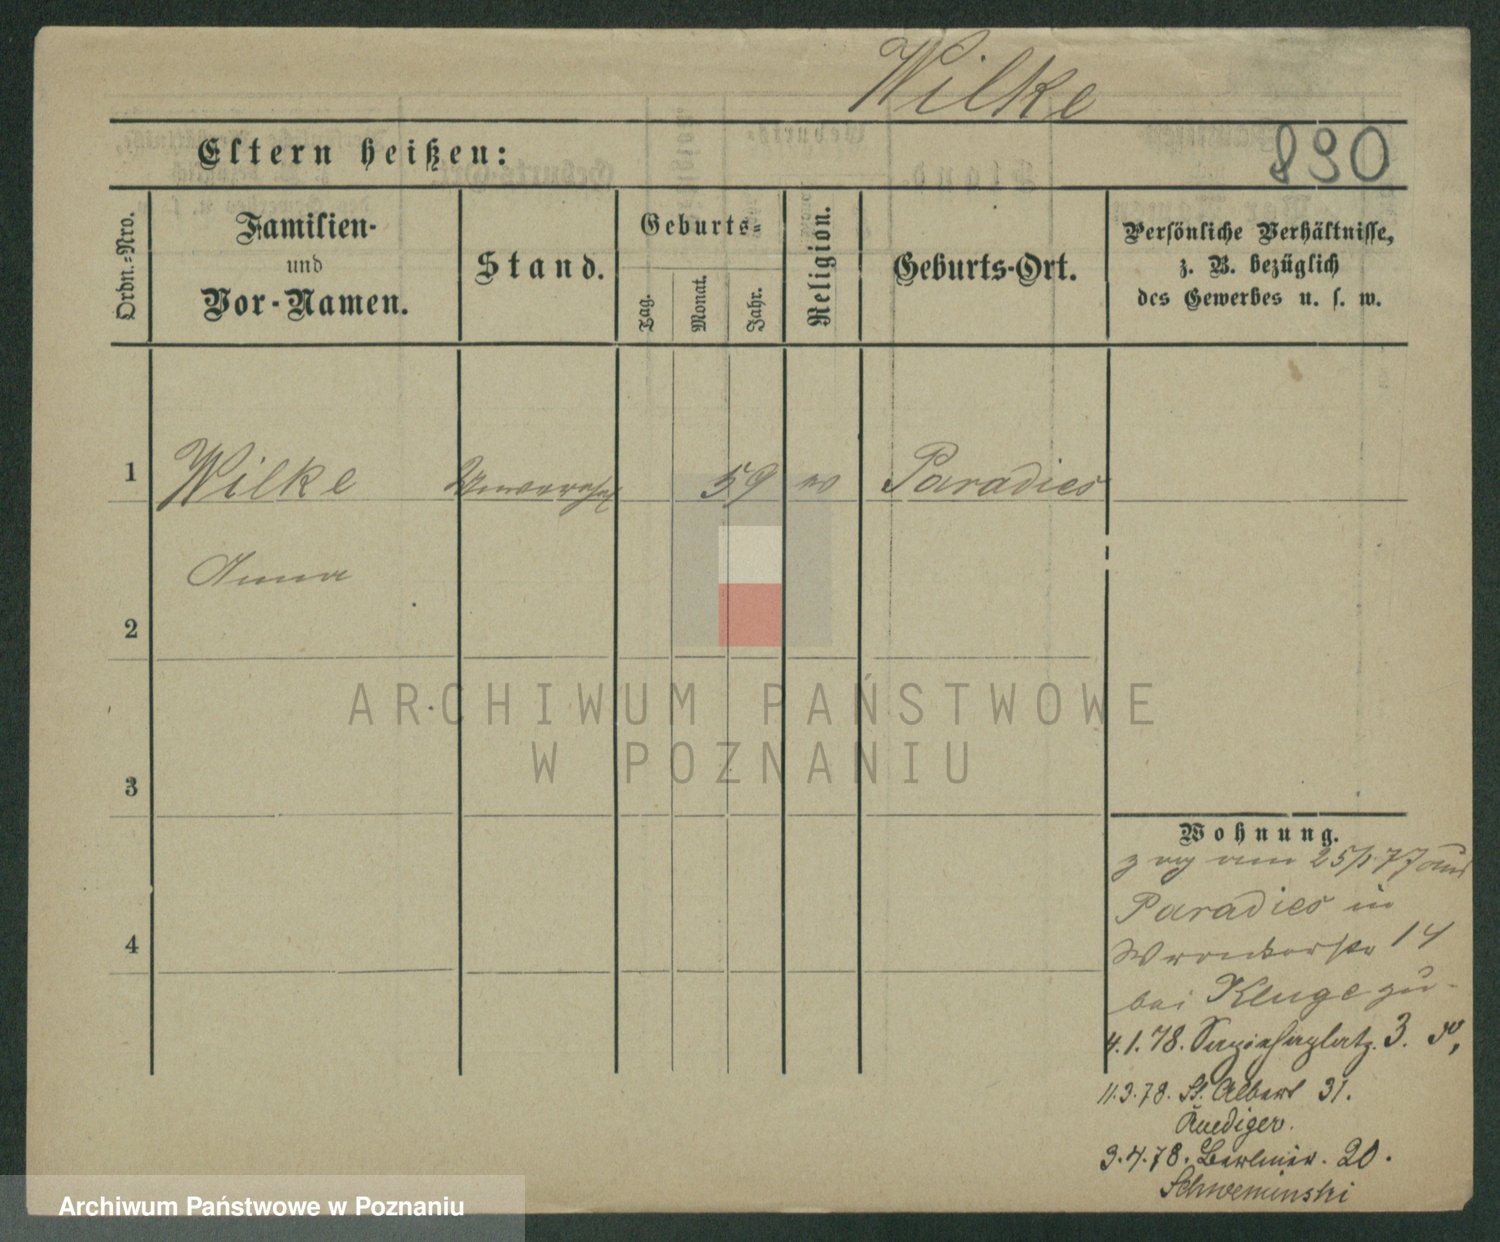 Wilke
890
Eltern heißen:
Ordn.-Nro.
Familien-
und
Vor-Namen.
Stand.
Geburts-
Tag.
Monat.
Jahr.
Religion.
Geburts-Ort.
Persönliche Verhältnisse,
z. B. bezüglich
des Gewerbes u. s. w.
1
Wilke
59
Paradies
Anna
2
ARCHIWUM PAŃSTWOWE
W POZNANIU
3
Wohnung.
zog am 25/1 77 aus
Paradies in
14
bei Kluge zu-
4
4.1.78. Sapiehaplatz. 3.
11.3.78. St. Adalbert 31.
Ruediger.
3.4.78. Berliner. 20.
Schweminski
Archiwum Państwowe w Poznaniu